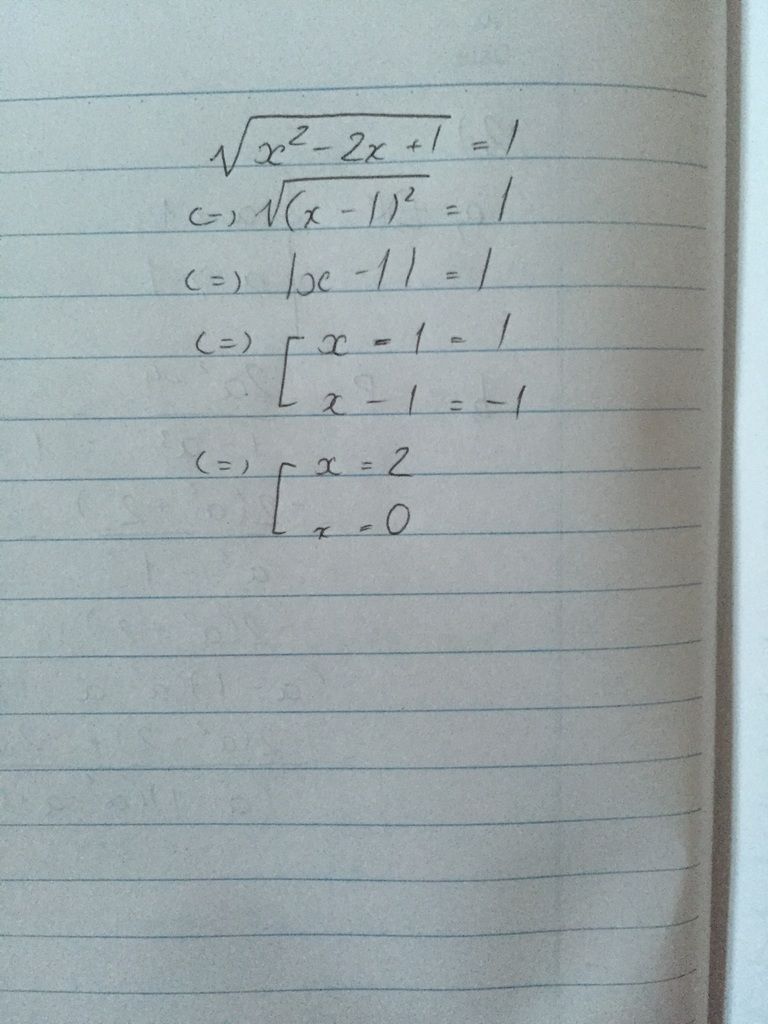 √(x² - 2x + 1) = 1
(=) √(x - 1)² = 1
(=) |x - 1| = 1
(=) [ x - 1 = 1
x - 1 = -1
(=) [ x = 2
x = 0